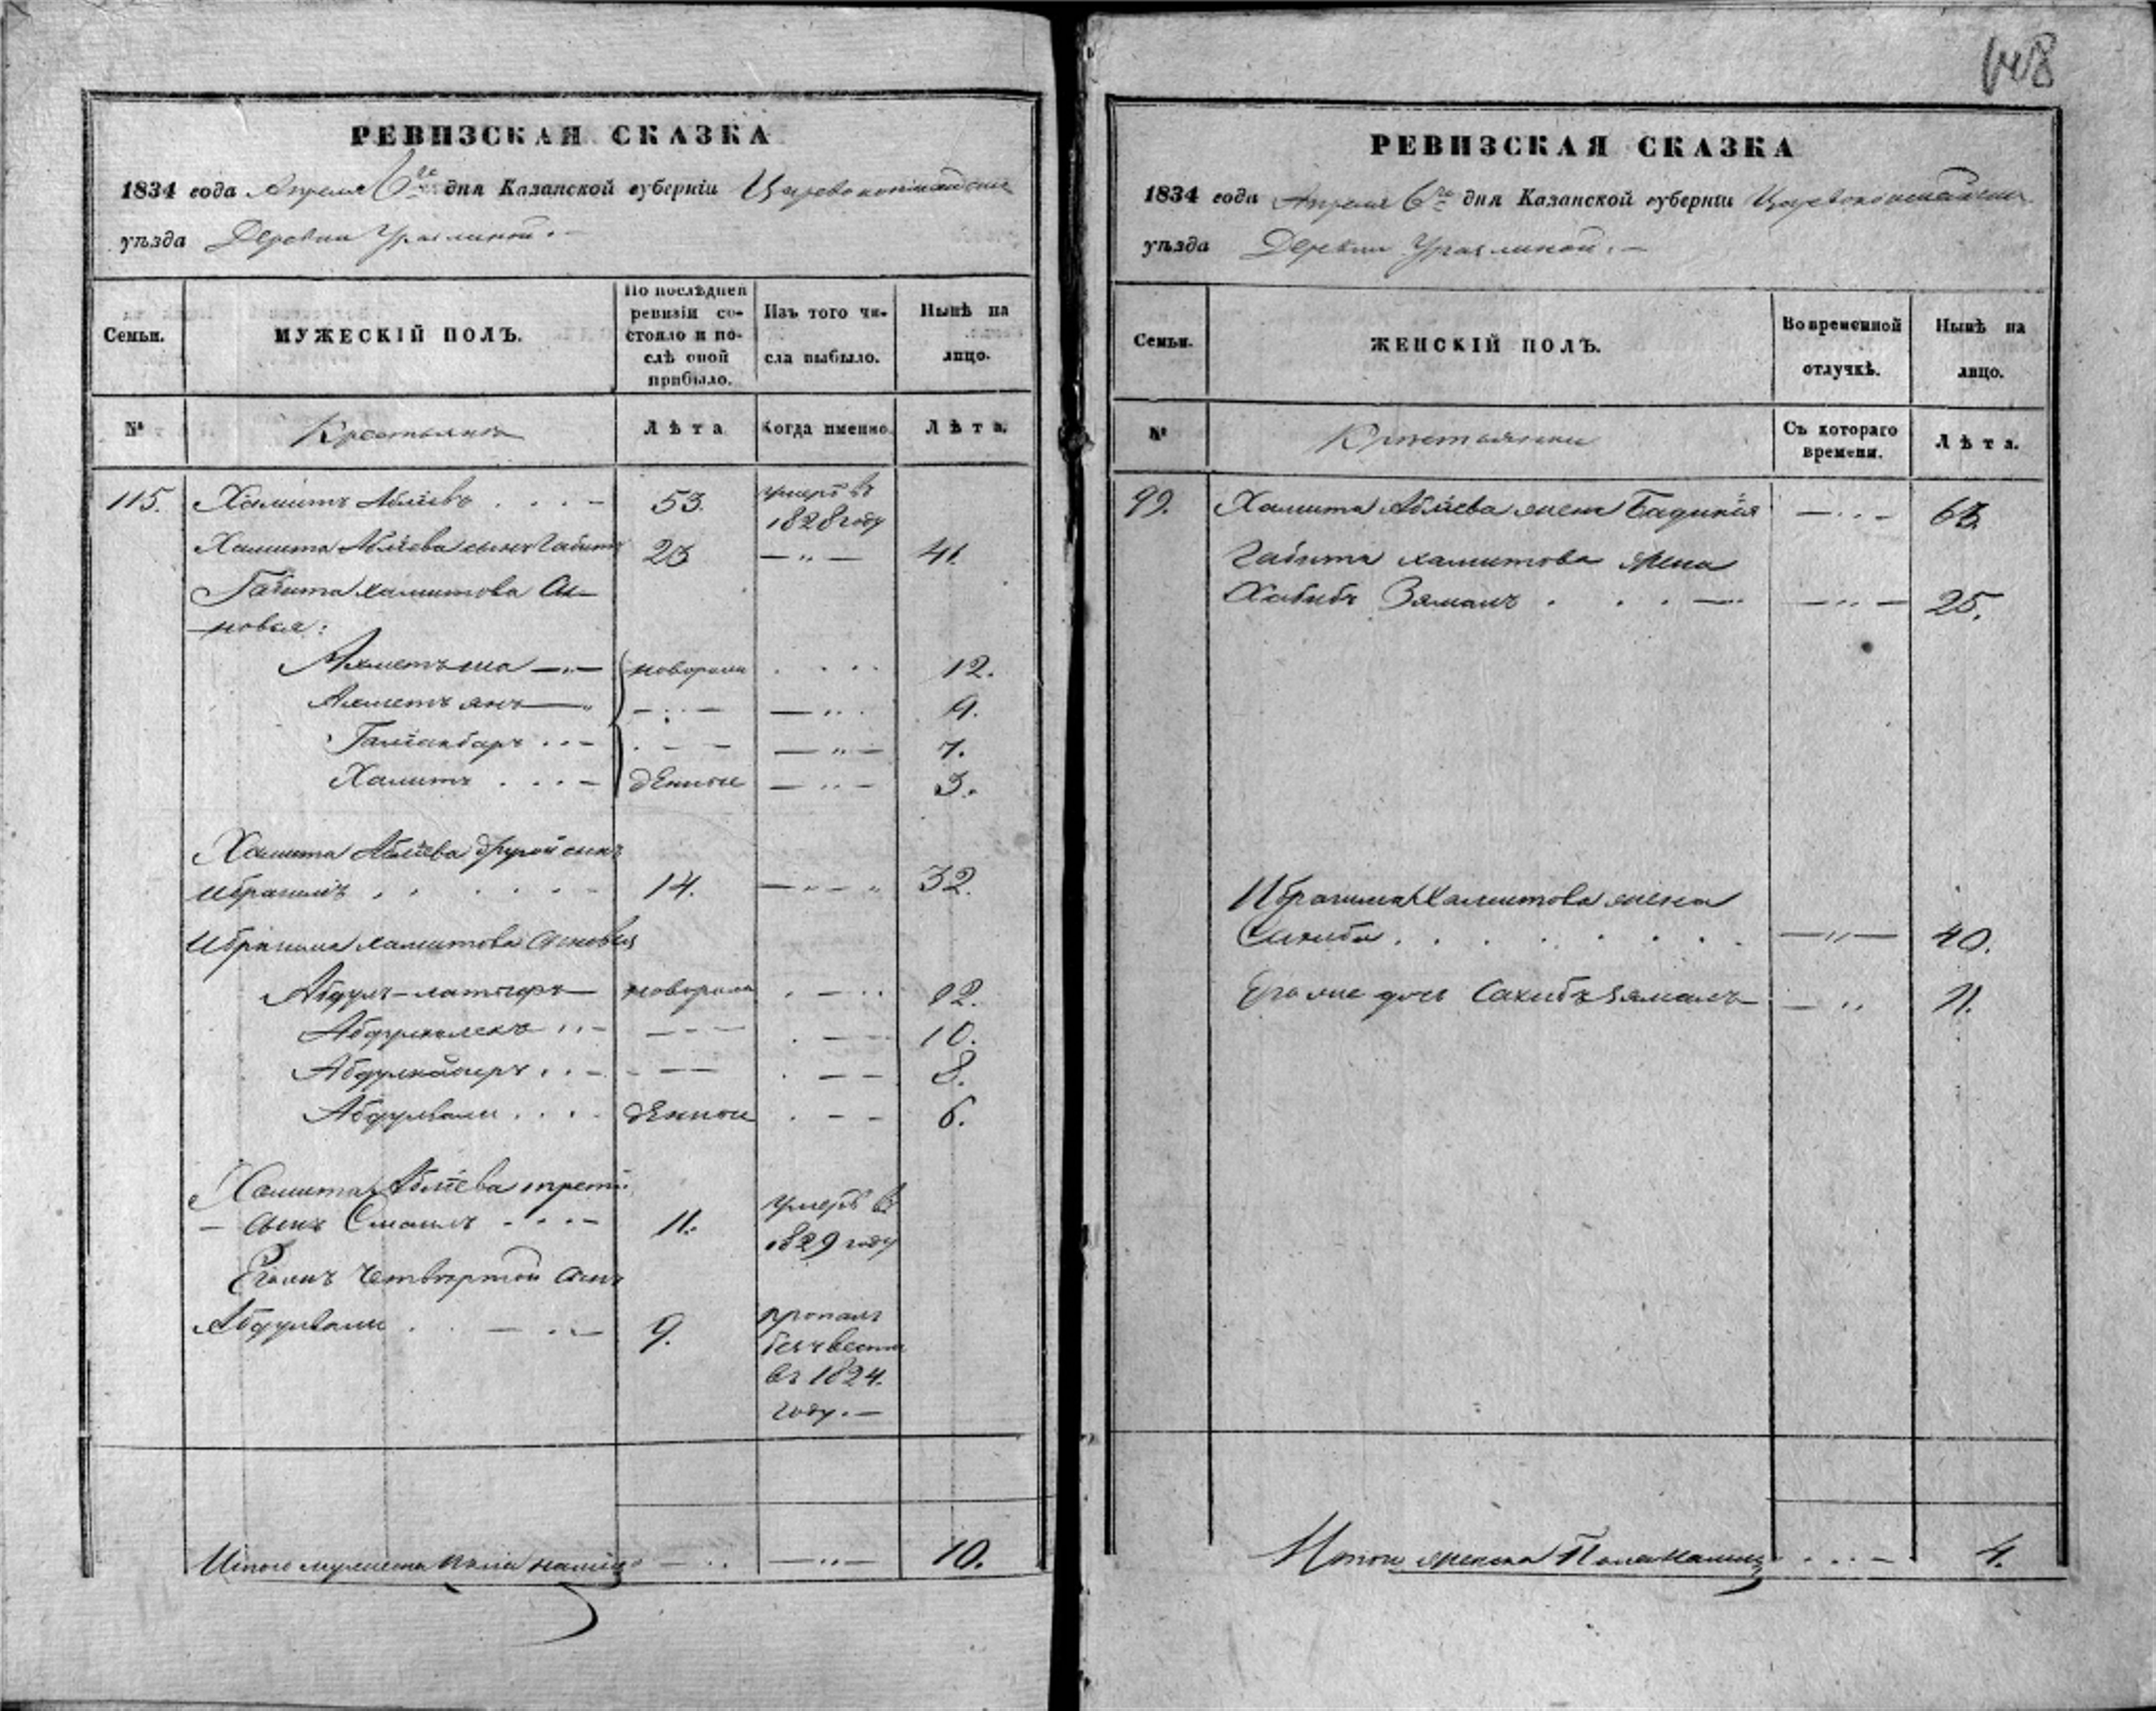 РЕВИЗСКАЯ СКАЗКА
1834 года Апреля 6го дня Казанской губерніи Царевококшайскаго
уѣзда Деревни Ураслиной.
Семьи.
МУЖЕСКІЙ ПОЛЪ.
По послѣдней
ревизіи со-
стояло и по-
слѣ оной
прибыло.
Изъ того чи-
сла выбыло.
Нынѣ на
лицо.
№
Крестьянъ
Лѣта
Когда именно.
Лѣта.
115. Хамитъ Аблѣевъ 53. умеръ въ
1828 году
Хамита Аблѣева сынъ Габитъ 23 41.
Габита Хамитова сы-
новья:
Ахметьша новорож 12.
Ахметъ янъ 9.
Галіакбаръ 7.
Хамитъ денные 3.
Хамита Аблѣева другой сынъ
Ибрагимъ 14. 32.
Ибрагима Хамитова сыновья
Абдулъ-латыфъ новорож 12.
10.
8.
Абдулвали денные 6.
Хамита Аблѣева третій
сынъ Смаилъ 11. умеръ въ
1829 году
Его же четвертой сынъ
Абдулвали 9. пропалъ
безъ вести
въ 1824.
году.
Итого мужеска пола налицо 10.
РЕВИЗСКАЯ СКАЗКА
1834 года Апреля 6го дня Казанской губерніи Царевококшайскаго
уѣзда Деревни Ураслиной.
Семьи.
ЖЕНСКІЙ ПОЛЪ.
Во временной
отлучкѣ.
Нынѣ на
лицо.
№
Крестьянки
Съ котораго
времени.
Лѣта.
99. Хамита Аблѣева жена
Габита Хамитова жена
Хабибъ Зямалъ 25.
Ибрагима Хамитова жена
Сахиба 40.
Его же дочь Сахибъ Зямалъ 11.
Итого женска Пола налицо 4.